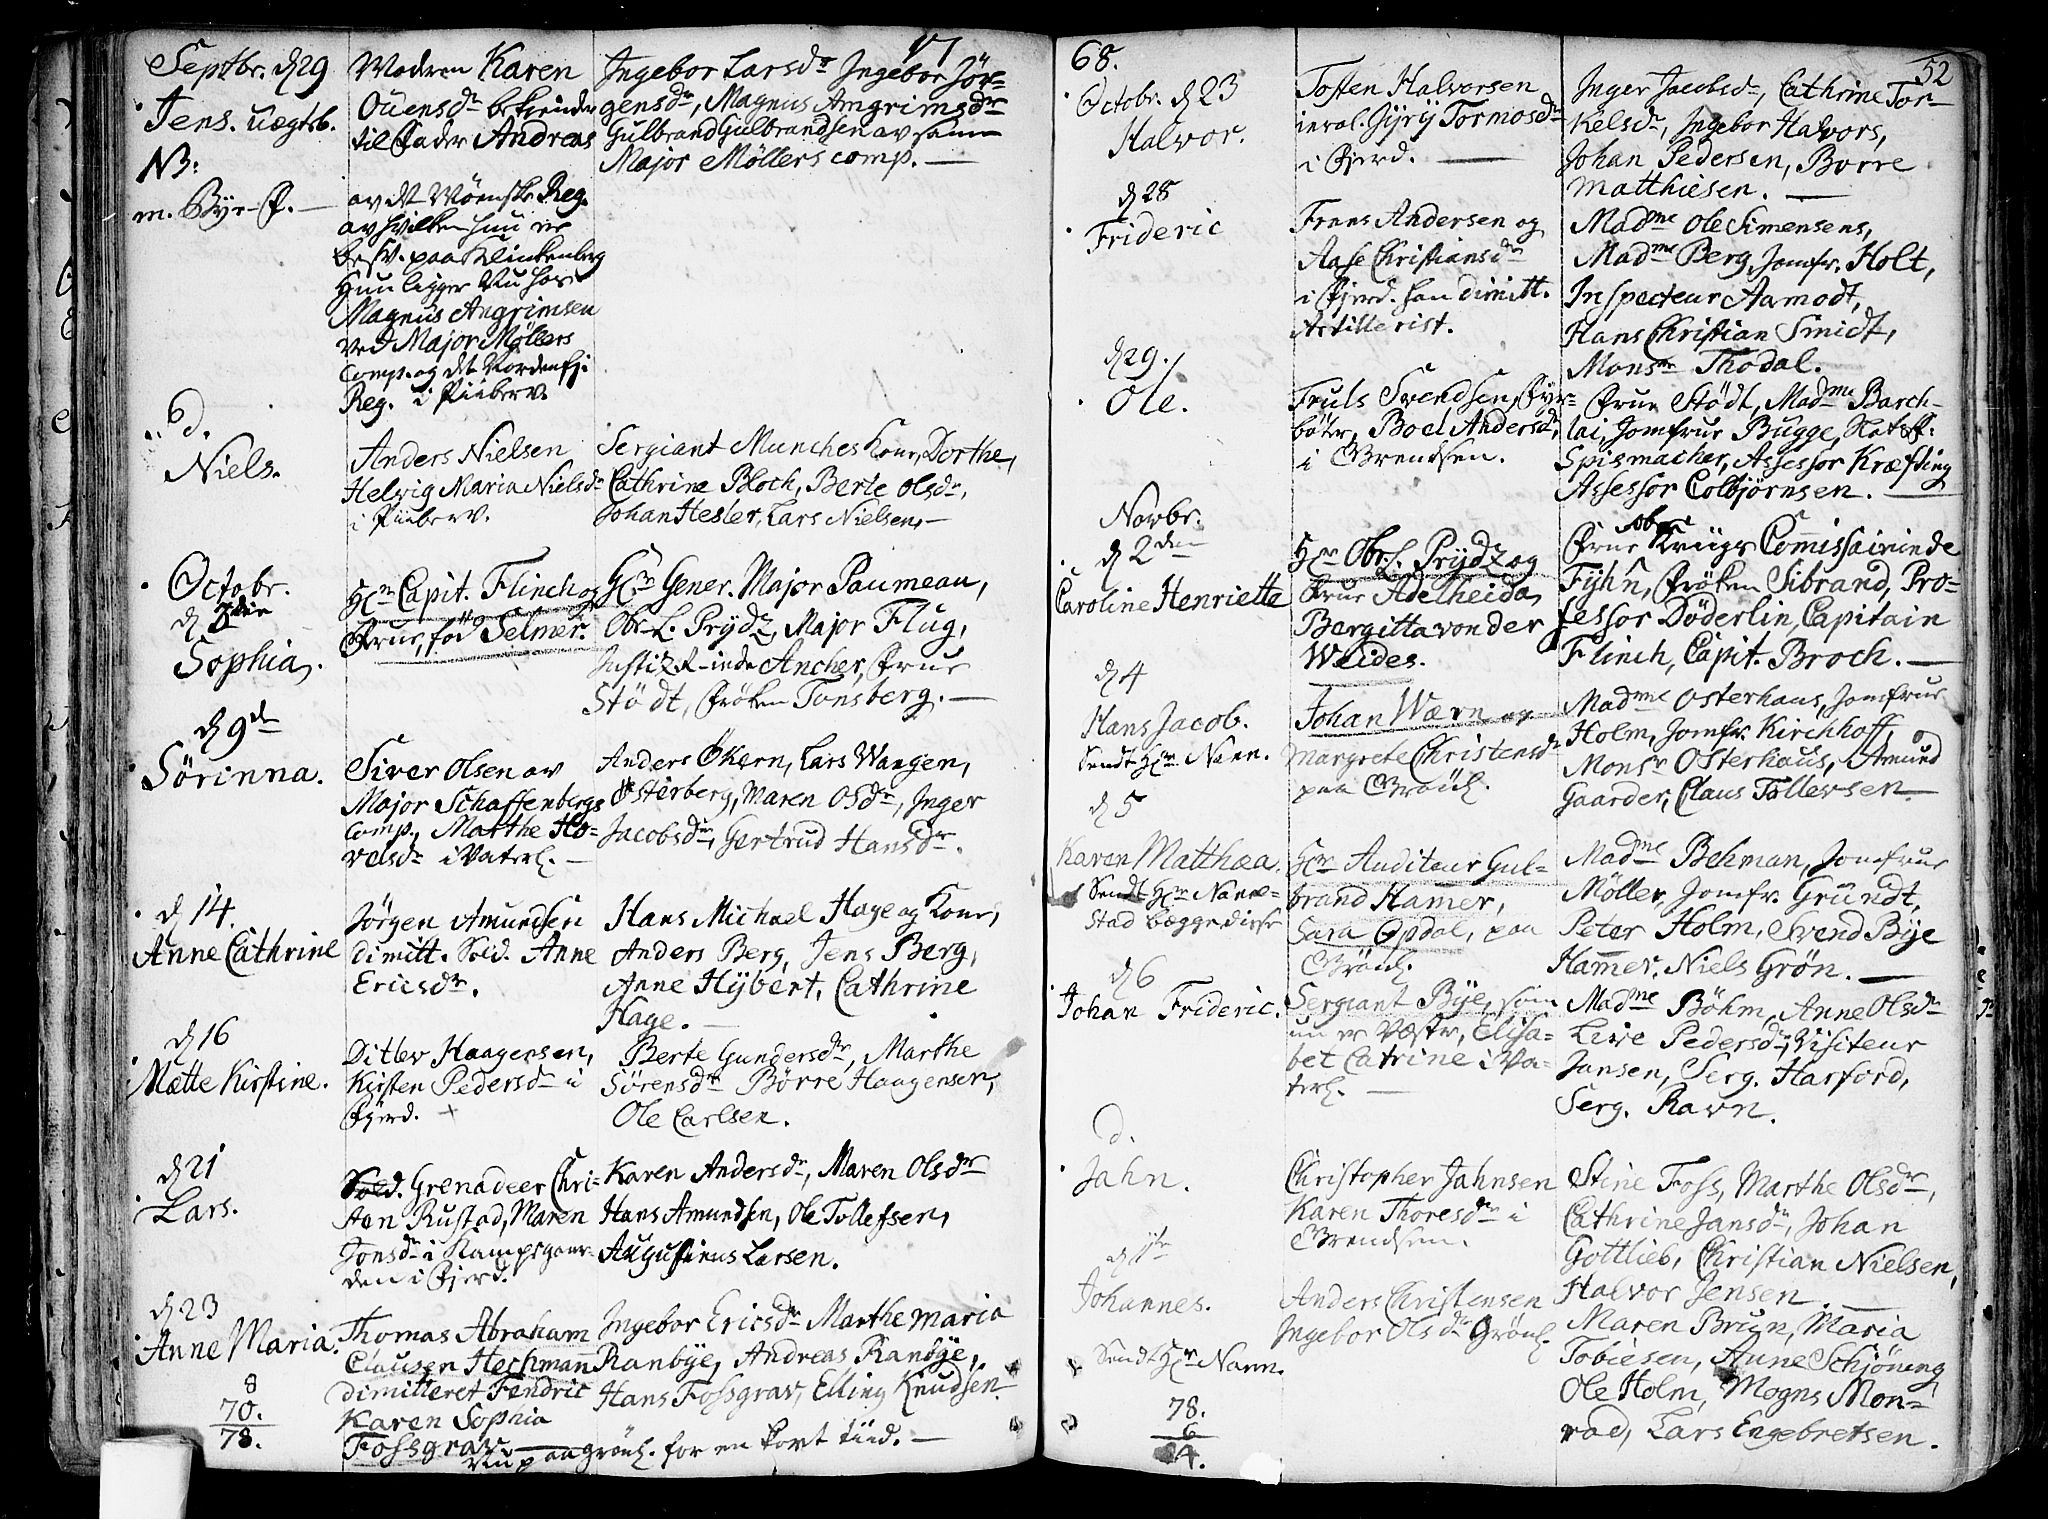 17
Septbr. d 29
Jens. uægtb.
NB:
m. Byr-F.
Modren Karen
Ouensdr. bekiender
til Fader Andreas
av det Mönske Reg.
av hvilken hun er
besv. paa Klinkenberg
Hun ligger Nu hos
Magnus Angrimsen
ved Major Møllers
Comp. og det Nordenfj.
Reg. i Piiberv.
Ingebor Larsdr. Ingebor Jör-
gensdr, Magnus Amgrimsdr
Gulbrand Gulbrandsen av samme
Major Möllers comp. —
d.
Niels.
Anders Nielsen
Helvig Maria Nielsdr
i Piiberv.
Sergiant Munches Kone, Dorthe,
Cathrine Bloch, Berte Olsdr,
Johan Hesler, Lars Nielsen, —
Octobr.
d 7de
Sophia.
Hr. Capit. Flinch og
Frue, föd Selmer.
Hr. Gener. Major Paumeau,
Obr. L. Prydz, Major Flug,
Justiz R-inde Ancher, Frue
Stödt, Fröken Tonsberg. —
d 9de
Sörinna.
Siver Olsen av
Major Schaffenbergs
comp., Marthe Ho-
velsdr i Vaterl. —
Anders Økern, Lars Waagen,
Österberg, Maren Olsdr, Inger
Jacobsdr, Gertrud Hansdr.
d 14.
Anne Cathrine
Jörgen Amundsen
dimitt. Sold. Anne
Ericsdr.
Hans Michael Hage og Kone,
Anders Berg, Jens Berg,
Anne Hybert, Cathrine
Hage. —
d 16
Mætte Kirstine.
Ditlev Haagensen,
Kirsten Pedersdr i
Fjerd.
Berte Gundersdr, Marthe
Sörensdr Börre Haagensen,
Ole Carlsen.
d 21
Lars.
Sold. Grenadeer Chri-
sten Rustad, Maren
Jonsdr i Kampegaar-
den i Fjerd.
Karen Andersdr, Maren Olsdr
Hans Amundsen, Ole Tollefsen,
Augustinus Larsen.
d 23
Anne Maria.
Thomas Abraham
Clausen Hechmann
dimitteret Fendric
Karen Sophia
Fossgrav
Nu paa Grönl. for en kort tiid. —
Ingebor Ericsdr Marthe Maria
Ranbye, Andreas Ranbye,
Hans Fossgrav, Elling Knudsen
8
70.
78.
68.
52
Octobr. d 23
Halvor.
Tosten Halvorsen
inval. Syrÿ Tormosdr
i Fjerd. —
Inger Jacobsdr, Cathrine Tor-
kelsdr, Ingebor Halvors,
Johan Pedersen, Borre
Matthiesen. —
d 28
Frideric
Frans Andersen og
Aase Christiansdr
i Fjerd. han dimitt.
Artillerist.
Madme Ole Simensens,
Madme Berg, Jomfr. Holt,
Inspecteur Aamodt,
Hans Christian Smidt,
Monsr Thodal.
d 29.
Ole.
Truls Svendsen, Fyr-
böter, Boel Andersdr
i Grendsen.
Frue Stödt, Madme Barch-
lai, Jomfrue Bugge,
Spismacher, Assessor Kræfting
Assessor Colbjörnsen. —
Novbr.
d 2den
Caroline Henrietta
Hr Obr. L. Prydz og
Frue Adelheida,
Bergitta von der
Weides.
Frue Krügs Comissairinde
Fyhn, Fröken Sibrand, Pro-
fessor Döderlin, Capitain
Flinch, Capit. Broch. —
d 4
Hans Jacob.
Sendt Hr Nann.
Johan Wærn og
Margrete Christensdr
paa Grönl.
Madme Osterhaus, Jomfrue
Holm, Jomfr. Kirchhoff,
Monsr Osterhaus, Amund
Gaarder, Claus Tollevsen
d 5
Karen Matthæa.
Sendt Hr Nanne-
stad begge disse
Hr Auditeur Gul-
brand Hammer,
Sara Opdal, paa
Grönl.
Madme Behman, Jomfrue
Möller, Jomfr. Grundt,
Peter Holm, Svend Bye
Hammer. Niels Grøn. —
d 6
Johan Frideric.
Sergiant Bye, som
nu er Vægtr, Elisa-
bet Catrine i Va-
terl. —
Madme Böhm, Anne Olsdr
Live Pedersdr, Visiteur
Jansen, Serg. Harford,
Serg. Ravn.
d.
Jahn.
Christopher Jahnsen
Karen Thoresdr i
Grendsen.
Stine Foss, Marthe Olsdr,
Cathrine Jansdr, Johan
Gottlieb, Christian Nielsen,
Halvor Jensen. —
d 11te
Johannes.
Sendt Hr Nann.
Anders Christensen
Ingebor Olsdr Grönl.
Maren Brun, Maria
Tobiesen, Anne Schjöning
Ole Holm, Mogns Mon-
rad, Lars Engebretsen.
78.
6
84.